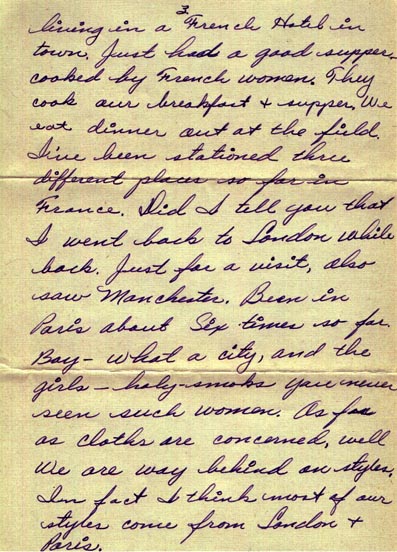 3.
living in a French Hotel in
town. Just had a good supper.
cooked by French women. They
cook our breakfast + supper. We
eat dinner out at the field.
I've been stationed three
different places so far in
France. Did I tell you that
I went back to London while
back. Just for a visit, also
saw Manchester. Been in
Paris about Six times so far.
Boy - what a city, and the
girls - holy-smoks you never
seen such women. As far
as cloths are concerned, well
We are way behind on styles.
Im fact I think most of our
styles come from London +
Paris.